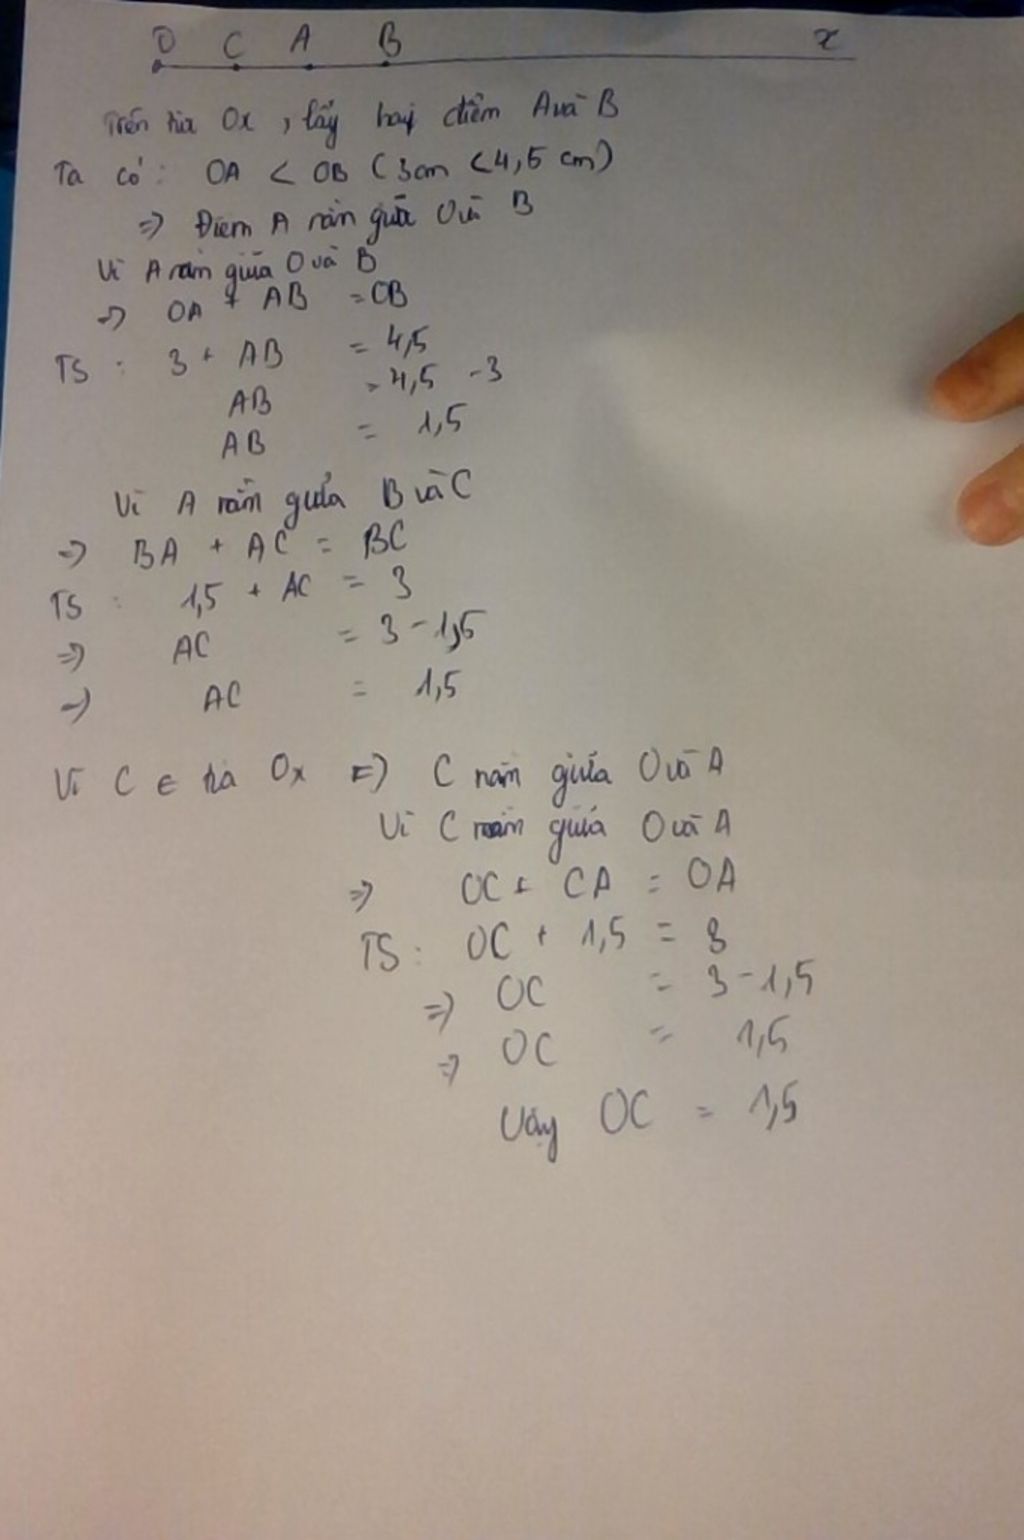 O C A B x
Trên tia Ox, lấy hai điểm A và B
Ta có: OA < OB (3cm < 4,5 cm)
=> Điểm A nằm giữa O và B
Vì A nằm giữa O và B
=> OA + AB = OB
TS : 3 + AB = 4,5
AB = 4,5 - 3
AB = 1,5
Vì A nằm giữa B và C
=> BA + AC = BC
TS : 1,5 + AC = 3
=> AC = 3 - 1,5
=> AC = 1,5
Vì C ∈ tia Ox => C nằm giữa O và A
Vì C nằm giữa O và A
=> OC + CA = OA
TS : OC + 1,5 = 3
=> OC = 3 - 1,5
=> OC = 1,5
Vậy OC = 1,5